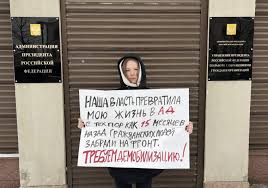 АДМИНИСТРАЦИЯ
ПРЕЗИДЕНТА
РОССИЙСКОЙ
ФЕДЕРАЦИИ
УПРАВЛЕНИЕ
ПРЕЗИДЕНТА
РОССИЙСКОЙ ФЕДЕРАЦИИ
ПО РАБОТЕ С ОБРАЩЕНИЯМИ
ГРАЖДАН И ОРГАНИЗАЦИЙ
НАША ВЛАСТЬ ПРЕВРАТИЛА
МОЮ ЖИЗНЬ В АД
С ТЕХ ПОР КАК 15 МЕСЯЦЕВ
НАЗАД ГРАЖДАНСКИХ ЛЮДЕЙ
ЗАБРАЛИ НА ФРОНТ.
ТРЕБУЕМ ДЕМОБИЛИЗАЦИЮ!